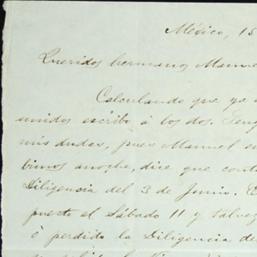 México, 15
Queridos hermanos Manuel
Calculando que ya e
unidos escribo á los dos. Teng
mis dudas, pues Manuel en
bimos anoche, dice que cont
Diligencia del 3 de Junio. E
puerto el Sábado 11 y salvo
ó perdido la Diligencia de